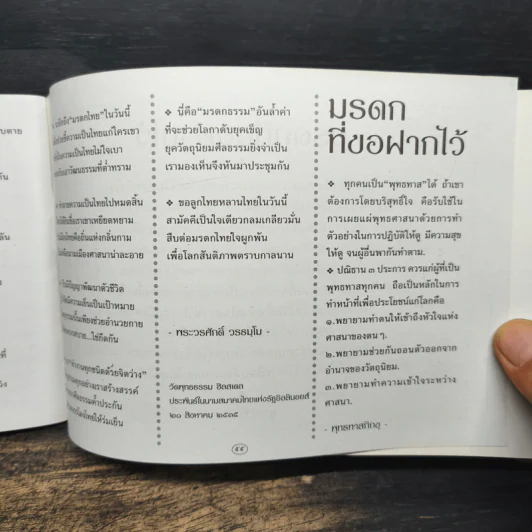 บตาย
"มรดกไทย"ในวันนี้
ความเป็นไทยแก่ใครเขา
ความเป็นไทยไม่ไจเบา
วัฒนธรรมที่ต่ำทราม
ความเป็นไทยไปหมดสิ้น
เขาเหยียดหยาม
ยืนแห่งกลิ่นกาม
เมืองศาสนาน่าละอาย
ปัญญาพัฒนาตัวชีวิต
เป็นเป้าหมาย
เพียงช่วยอำนวยกาย
...ใช้กีดกัน
ทุกชนิดด้วยจิตว่าง"
สร้างสรรค์
ให้ร่มเย็น
❖ นี่คือ"มรดกธรรม"อันล้ำค่า
ที่จะช่วยโลกาดับยุคเข็ญ
ยุควัตถุนิยมศีลธรรมยิ่งจำเป็น
เรามองเห็นจึงหันมาประชุมกัน
❖ ขอลูกไทยหลานไทยในวันนี้
สามัคคีเป็นใจเดียวกลมเกลียวมั่น
สืบต่อมรดกไทยใจผูกพัน
เพื่อโลกสันติภาพตราบกาลนาน
- พระวรศักดิ์ วรธมฺโม -
วัดพุทธธรรม ฮิลสเดล
ประพันธ์ในนามสมาคมไทยแห่งรัฐอิลลินอยส์
๒๐ สิงหาคม ๒๕๓๕
มรดก
ที่ขอฝากไว้
❖ ทุกคนเป็น"พุทธทาส"ได้ ถ้าเขา
ต้องการโดยบริสุทธิ์ใจ คือรับใช้ใน
การเผยแผ่พุทธศาสนาด้วยการทำ
ตัวอย่างในการปฏิบัติให้ดู มีความสุข
ให้ดู จนผู้อื่นพากันทำตาม.
❖ ปณิธาน ๓ ประการ ควรแก่ผู้ที่เป็น
พุทธทาสทุกคน ถือเป็นหลักในการ
ทำหน้าที่เพื่อประโยชน์แก่โลกคือ
๑.พยายามทำตนให้เข้าถึงหัวใจแห่ง
ศาสนาของตน ๆ.
๒.พยายามช่วยกันถอนตัวออกจาก
อำนาจของวัตถุนิยม.
๓.พยายามทำความเข้าใจระหว่าง
ศาสนา.
- พุทธทาสภิกขุ -
๕๕